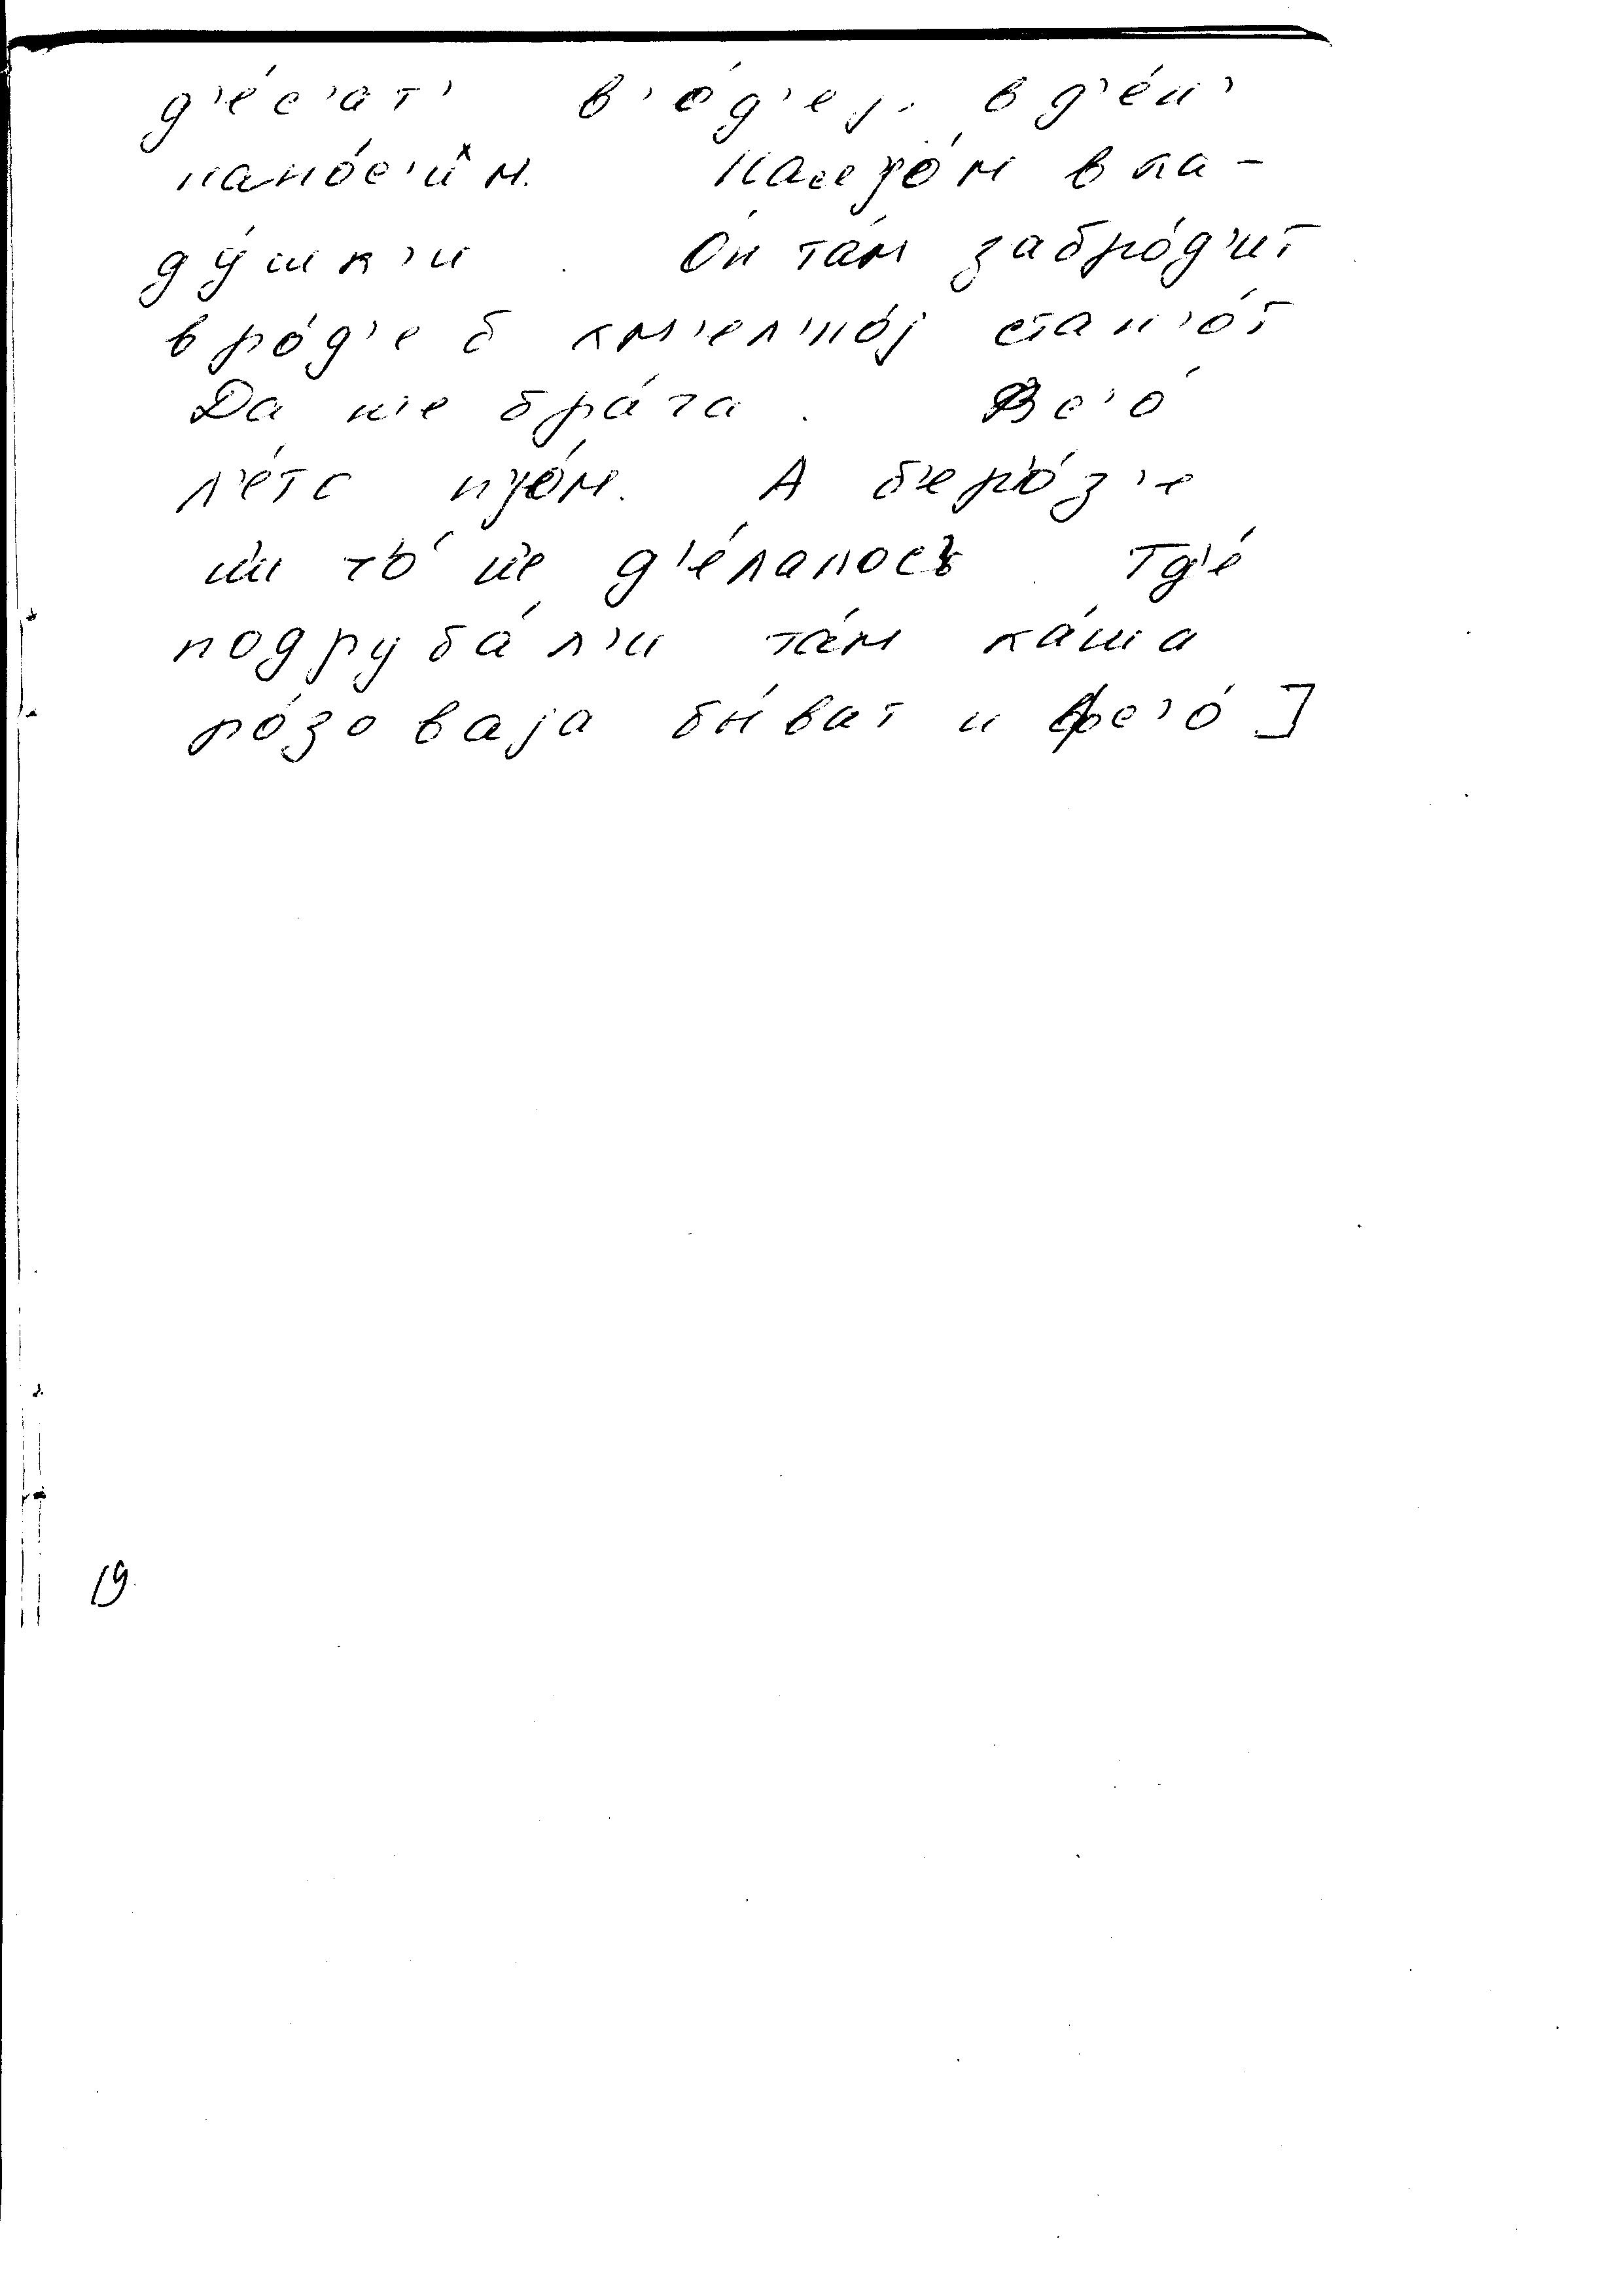 д'е́с'ат' в'о́д'ер. в д'е́н'
нано́с'им. Нал'јо́м в ка-
ду́шк'и. Он та́м забро́д'ит
вро́д'е б хм'ел'но́ј стан'о́т
Да н'е бра́га. Вс'о́
л'е́то пјо́м. А б'ер'о́з'е
н'и чо́ н'е д'е́лалос'. Гд'е́
подруба́л'и та́м ка́ша
ро́зоваја бы́ват и фс'о́ ]
19